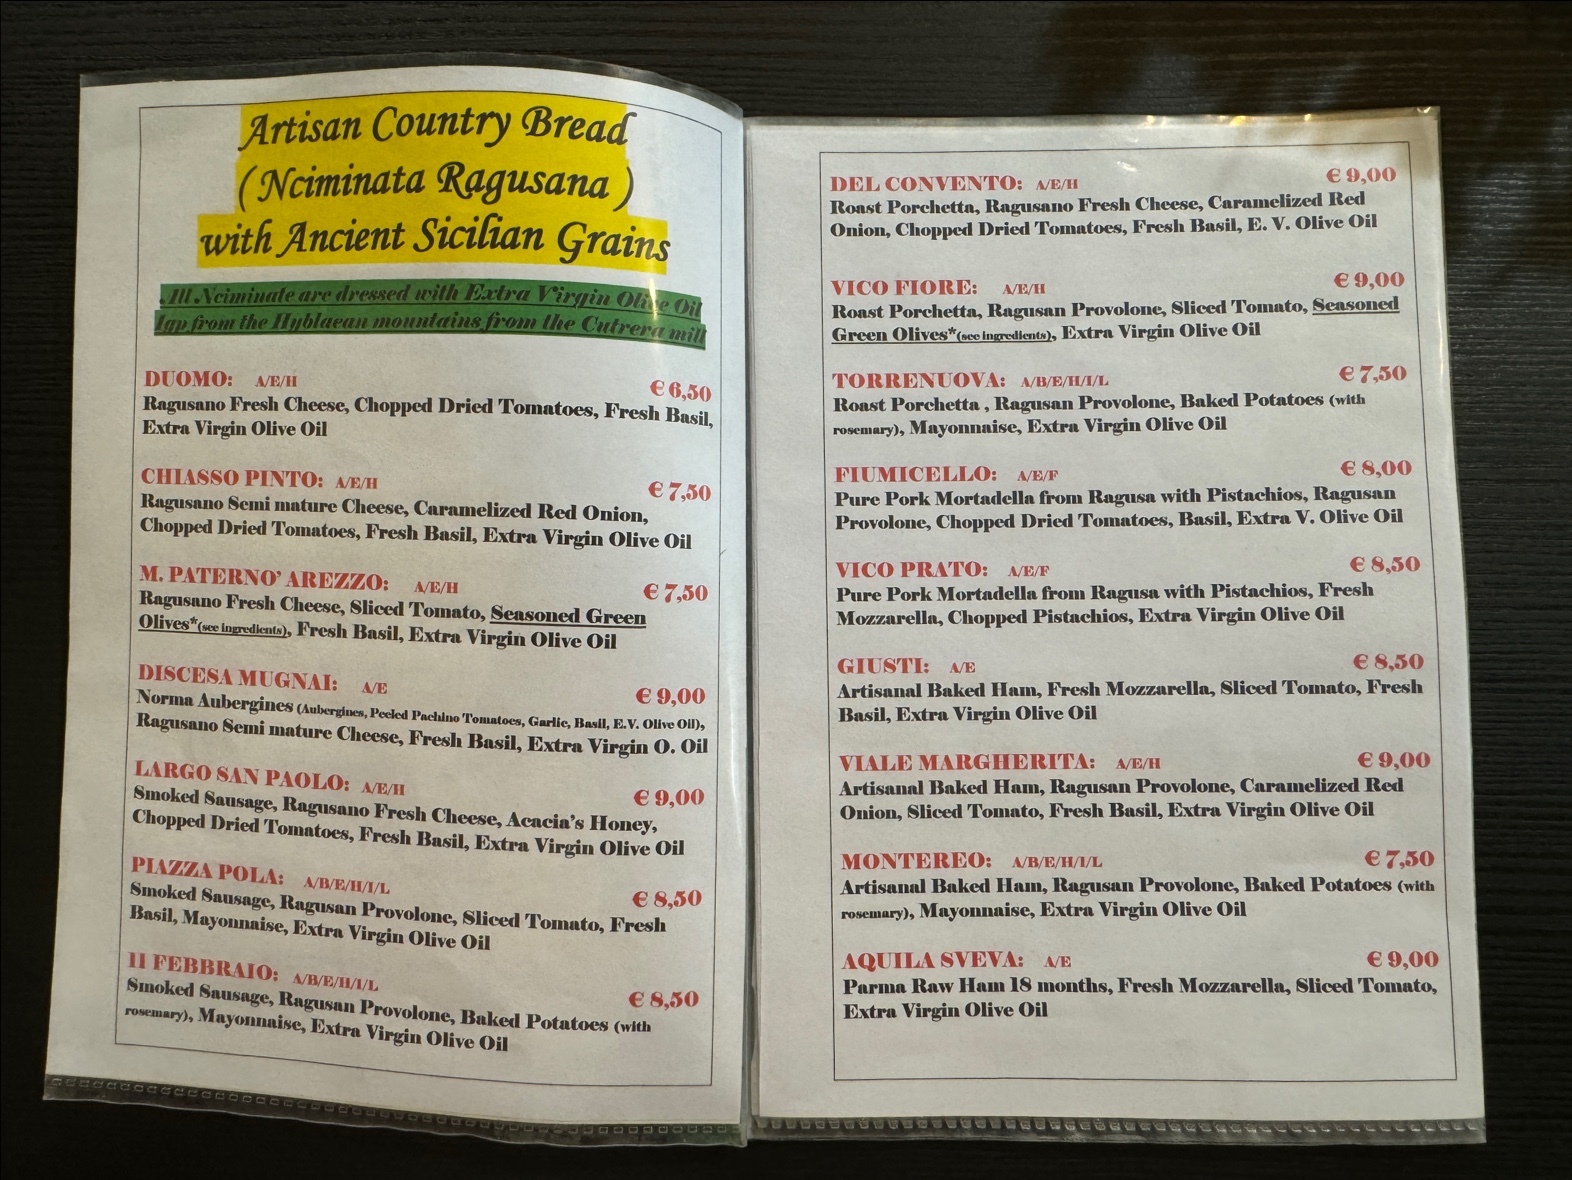 Artisan Country Bread
( Nciminata Ragusana )
with Ancient Sicilian Grains
All Nciminate are dressed with Extra Virgin Olive Oil
Igp from the Hyblaean mountains from the Cutrera mill
DUOMO: A/E/H € 6,50
Ragusano Fresh Cheese, Chopped Dried Tomatoes, Fresh Basil,
Extra Virgin Olive Oil
CHIASSO PINTO: A/E/H € 7,50
Ragusano Semi mature Cheese, Caramelized Red Onion,
Chopped Dried Tomatoes, Fresh Basil, Extra Virgin Olive Oil
M. PATERNO' AREZZO: A/E/H € 7,50
Ragusano Fresh Cheese, Sliced Tomato, Seasoned Green
Olives*(see ingredients), Fresh Basil, Extra Virgin Olive Oil
DISCESA MUGNAI: A/E € 9,00
Norma Aubergines (Aubergines, Peeled Pachino Tomatoes, Garlic, Basil, E.V. Olive Oil),
Ragusano Semi mature Cheese, Fresh Basil, Extra Virgin O. Oil
LARGO SAN PAOLO: A/E/H € 9,00
Smoked Sausage, Ragusano Fresh Cheese, Acacia's Honey,
Chopped Dried Tomatoes, Fresh Basil, Extra Virgin Olive Oil
PIAZZA POLA: A/B/E/H/I/L € 8,50
Smoked Sausage, Ragusan Provolone, Sliced Tomato, Fresh
Basil, Mayonnaise, Extra Virgin Olive Oil
11 FEBBRAIO: A/B/E/H/I/L € 8,50
Smoked Sausage, Ragusan Provolone, Baked Potatoes (with
rosemary), Mayonnaise, Extra Virgin Olive Oil
DEL CONVENTO: A/E/H € 9,00
Roast Porchetta, Ragusano Fresh Cheese, Caramelized Red
Onion, Chopped Dried Tomatoes, Fresh Basil, E. V. Olive Oil
VICO FIORE: A/E/H € 9,00
Roast Porchetta, Ragusan Provolone, Sliced Tomato, Seasoned
Green Olives*(see ingredients), Extra Virgin Olive Oil
TORRENUOVA: A/B/E/H/I/L € 7,50
Roast Porchetta , Ragusan Provolone, Baked Potatoes (with
rosemary), Mayonnaise, Extra Virgin Olive Oil
FIUMICELLO: A/E/F € 8,00
Pure Pork Mortadella from Ragusa with Pistachios, Ragusan
Provolone, Chopped Dried Tomatoes, Basil, Extra V. Olive Oil
VICO PRATO: A/E/F € 8,50
Pure Pork Mortadella from Ragusa with Pistachios, Fresh
Mozzarella, Chopped Pistachios, Extra Virgin Olive Oil
GIUSTI: A/E € 8,50
Artisanal Baked Ham, Fresh Mozzarella, Sliced Tomato, Fresh
Basil, Extra Virgin Olive Oil
VIALE MARGHERITA: A/E/H € 9,00
Artisanal Baked Ham, Ragusan Provolone, Caramelized Red
Onion, Sliced Tomato, Fresh Basil, Extra Virgin Olive Oil
MONTEREO: A/B/E/H/I/L € 7,50
Artisanal Baked Ham, Ragusan Provolone, Baked Potatoes (with
rosemary), Mayonnaise, Extra Virgin Olive Oil
AQUILA SVEVA: A/E € 9,00
Parma Raw Ham 18 months, Fresh Mozzarella, Sliced Tomato,
Extra Virgin Olive Oil